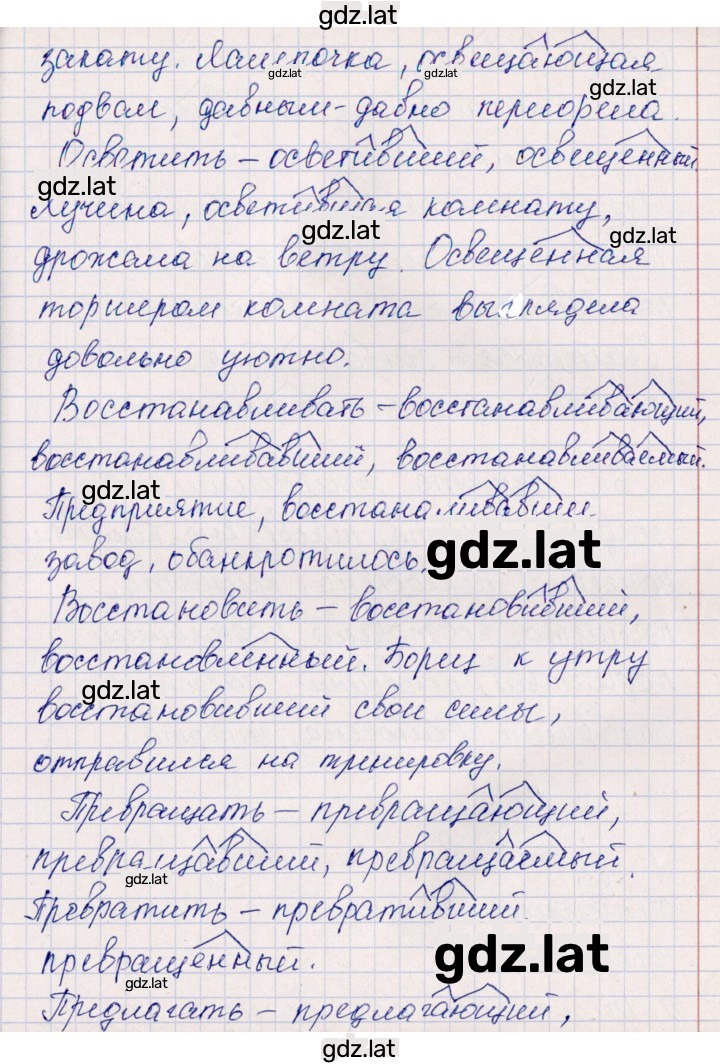 gdz.lat
закату. Лампочка, освещающая
gdz.lat gdz.lat
gdz.lat
подвал, давным-давно перегорела.
Осветить – осветивший, освещенный.
gdz.lat
Лучина, осветившая комнату,
gdz.lat gdz.lat
дрожала на ветру. Освещенная
торшером комната выглядела
довольно уютно.
Восстанавливать – восстанавливающий,
восстанавливавший, восстанавливаемый.
gdz.lat
Предприятие, восстана ливавши
завод, обанкротилось.
gdz.lat
Восстановить – восстановивший,
восстановленный. Борец к утру
gdz.lat
восстановивший свои силы,
отправился на тренировку.
Превращать – превращающий,
превращавший, превращаемый.
gdz.lat
Превратить – превративший
превращенный.
gdz.lat
Предлагать – предлагающий,
gdz.lat